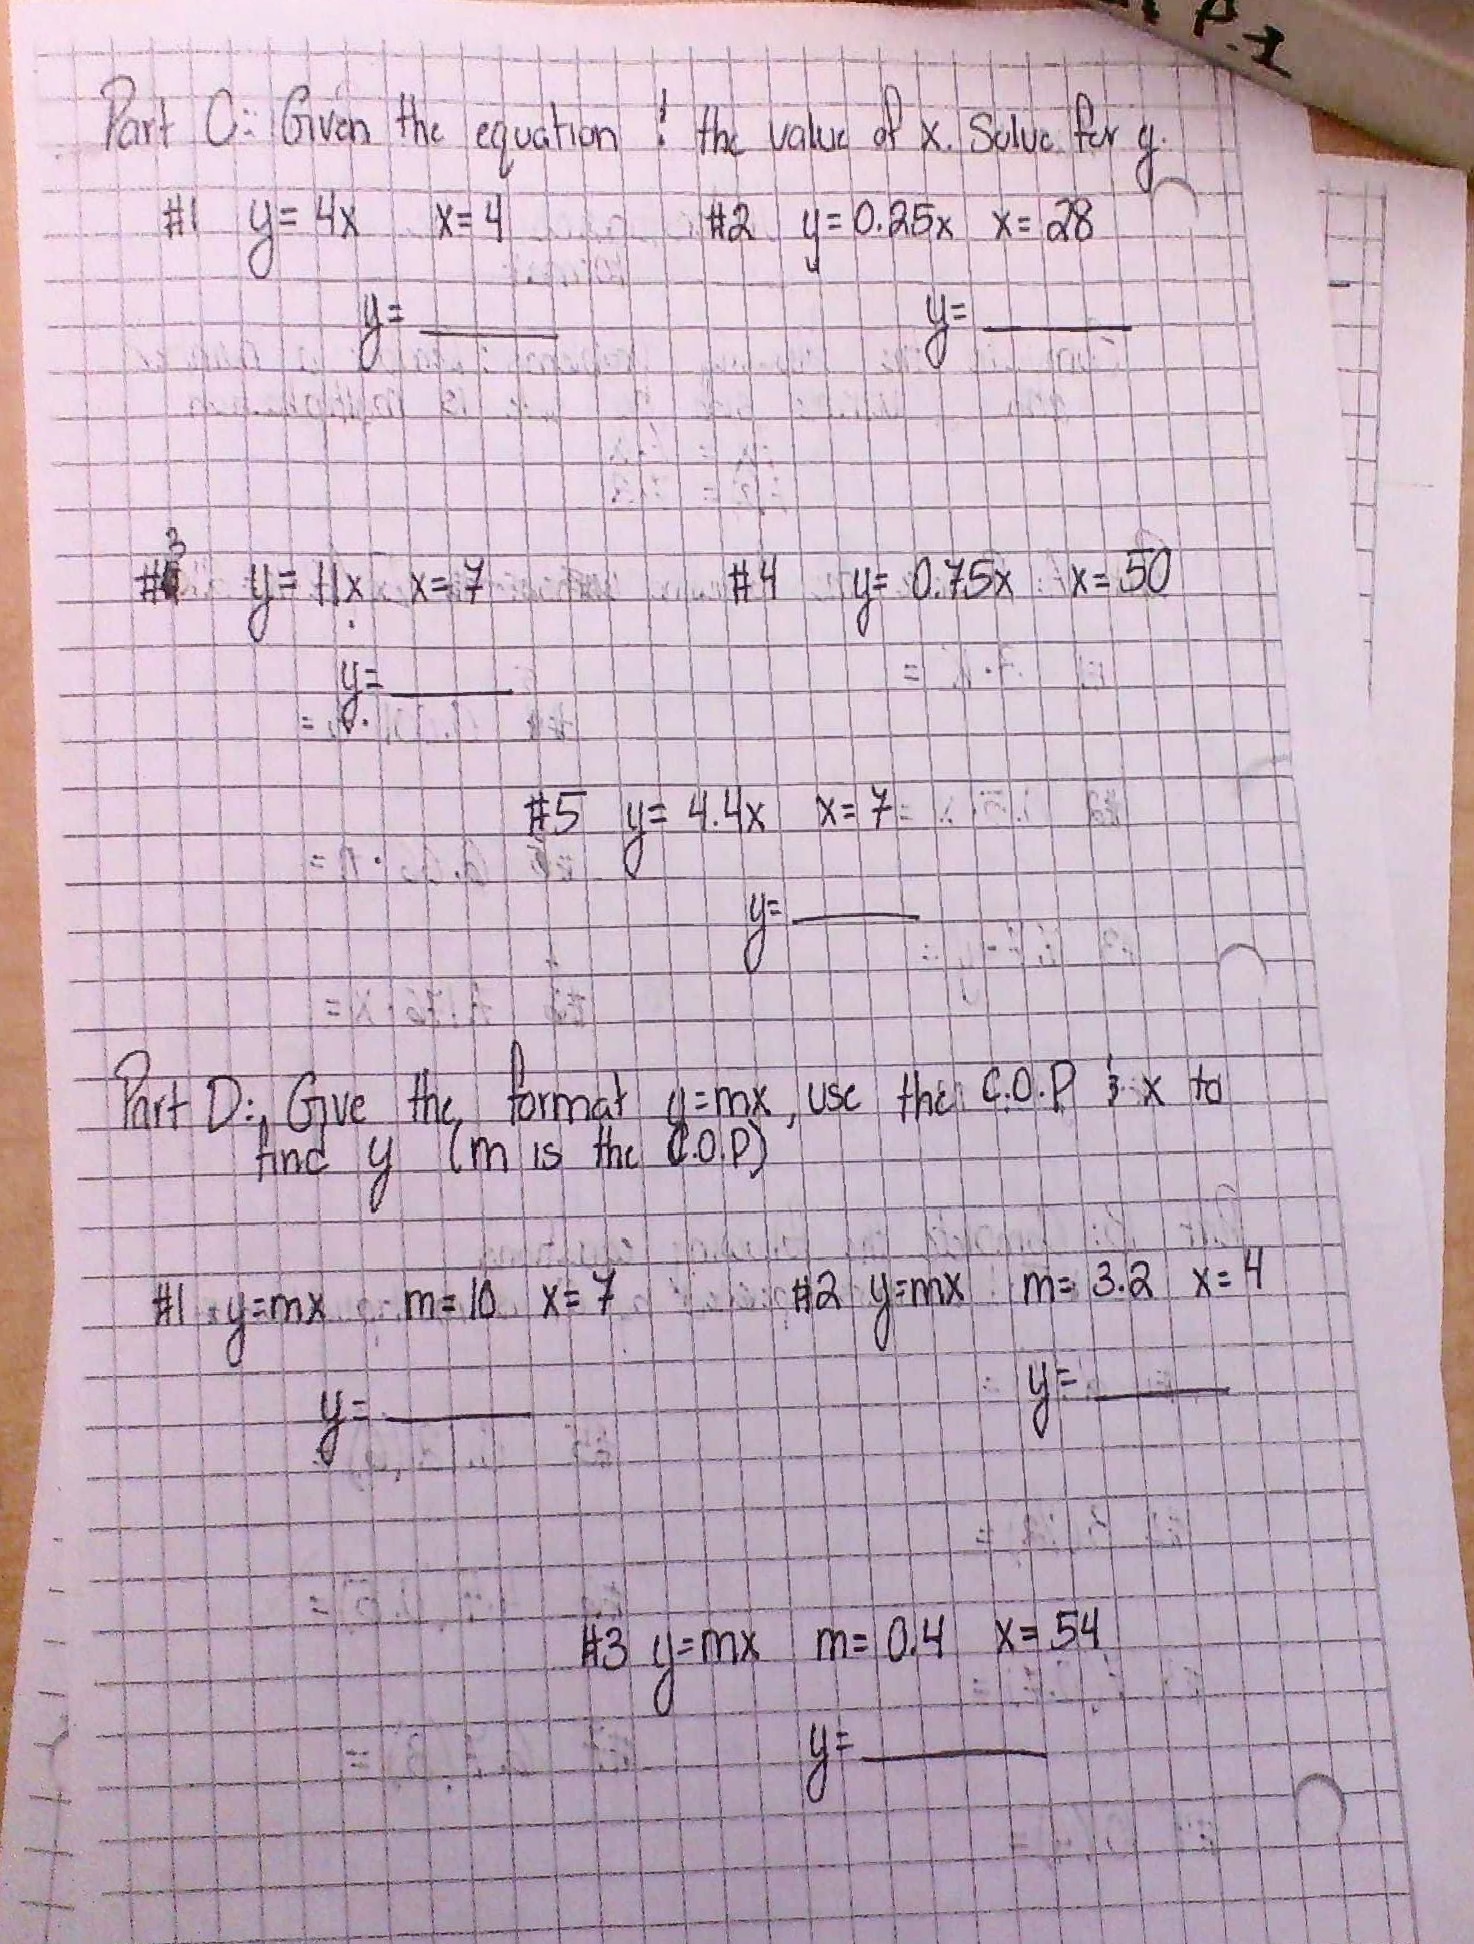 P.1
Part C: Given the equation & the value of x. Solve for y.
#1 y= 4x x=4 #2 y=0.25x x=28
y= y=
#3 y= 11x x=7 #4 y= 0.75x x=50
y=
#5 y= 4.4x x=7
y=
Part D: Give the format y=mx, use the C.O.P & x to
find y (m is the C.O.P)
#1 y=mx m=10 x=7 #2 y=mx m=3.2 x=4
y= y=
#3 y=mx m=0.4 x=54
y=